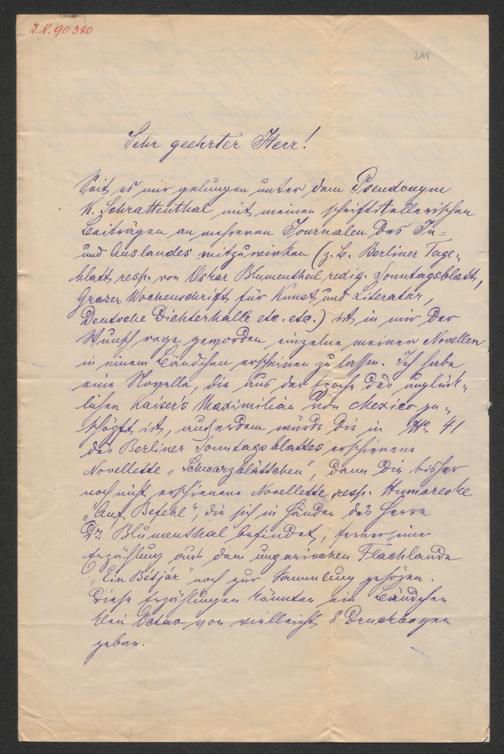 J.N. 90380
211
Sehr geehrter Herr!
Seit es mir gelungen unter dem Pseudonym
K. Schrattenthal mit meinen schriftstellerischen
Beiträgen an mehreren Journalen des In-
und Auslandes mitzuwirken (z. B. Berliner Tage-
blatt resp. von Oskar Blumenthal redig. Sonntagsblatt,
Grazer Wochenschrift für Kunst und Literatur,
Deutsche Dichterhalle etc. etc.) ist in mir der
Wunsch rege geworden einzelne meiner Novellen
in einem Bändchen erscheinen zu lassen. Ich habe
eine Novelle, die aus der Epoche des unglück-
lichen Kaiser's Maximilian von Mexico ge-
schöpft ist, außerdem würde die in Nr. 41
des Berliner Sonntagsblattes erschienene
Novellette „Schwarzblättchen", dann die bisher
noch nicht erschienene Novellette, resp. Humoreske
„Auf Befehl", die sich in Händen des Herrn
Dr. Blumenthal befindet, ferner eine
Erzählung aus dem ungarischen Flachlande
„Ein Betjár" noch zur Sammlung gehören.
Diese Erzählungen könnten ein Bändchen
klein Octav von vielleicht 8 Druckbogen
geben.